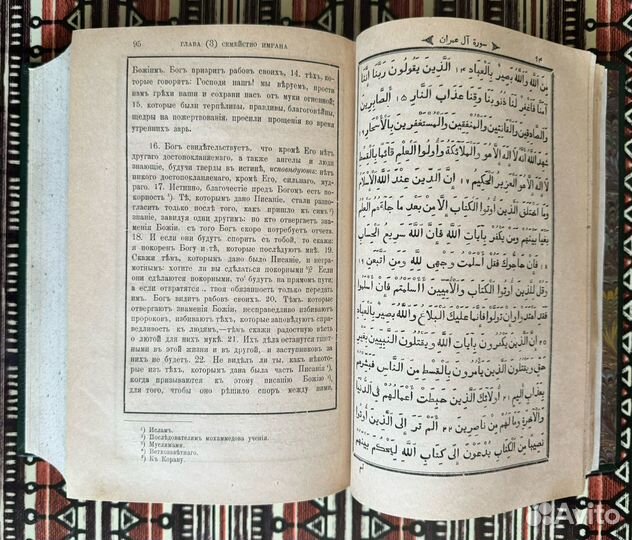 95 ГЛАВА (3) СЕМЕЙСТВО ИМРАНА
Божіимъ. Богъ призритъ рабовъ своихъ, 14. тѣхъ, ко-
торые говорятъ: Господи нашъ! мы вѣруемъ, прости
намъ грѣхи наши и сохрани насъ отъ муки огненной;
15. которые были терпѣливы, правдивы, благоговѣйны,
щедры на пожертвованія, просили прощенія во время
утреннихъ зарь.
16. Богъ свидѣтельствуетъ, что кромѣ Его нѣтъ
другаго достопокланяемаго, а также ангелы и люди
знающіе, будучи тверды въ истинѣ, исповѣдуютъ: нѣтъ
никого достопокланяемаго, кромѣ Его, сильнаго, муд-
раго. 17. Истинно, благочестіе предъ Богомъ есть по-
корность ¹) Тѣ, которымъ дано Писаніе, стали раз-
гласить только послѣ того, какъ пришло къ симъ ²)
знаніе, завидуя одни другимъ: но кто отвергаетъ зна-
менія Божіи, съ того Богъ скоро потребуетъ отчета.
18. И если они будутъ спорить съ тобой, то скажи:
я покоренъ Богу и тѣ, которые послѣдуютъ мнѣ. 19.
Скажи тѣмъ, которымъ дано было Писаніе, и негра-
мотнымъ: хотите ли вы сдѣлаться покорными ³)? Если
они сдѣлаются покорными, то будутъ на прямомъ пути,
а если отвратятся .. твоя обязанность только передать
имъ. Богъ видитъ рабовъ своихъ. 20. Тѣмъ, которые
отвергаютъ знаменія Божіи, несправедливо избиваютъ
пророковъ, избиваютъ тѣхъ, которые заповѣдуютъ спра-
ведливость къ людямъ,—тѣмъ скажи радостную вѣсть
о лютой для нихъ мукѣ. 21. Ихъ дѣла останутся тщет-
ными въ этой жизни и въ другой, и заступниковъ за
нихъ не будетъ. 22. Не видѣлъ ли ты, какъ нѣкото-
рые изъ тѣхъ, которымъ дана была часть Писанія ⁴),
когда призываются къ этому писанію Божію ⁵),
для того, чтобы оно рѣшило споръ между ними,
¹) Исламъ.
²) Послѣдователямъ мохаммедова ученія.
³) Муслимами.
⁴) Ветхозавѣтнаго.
⁵) Къ Корану.
سورة آل عمران
مِنَ اللّٰهِ وَاللّٰهُ بَصِيرٌ بِالْعِبَادِ ١٤ الَّذِينَ يَقُولُونَ رَبَّنَا إِنَّنَا
آمَنَّا فَاغْفِرْ لَنَا ذُنُوبَنَا وَقِنَا عَذَابَ النَّارِ ١٥ الصَّابِرِينَ
وَالصَّادِقِينَ وَالْقَانِتِينَ وَالْمُنْفِقِينَ وَالْمُسْتَغْفِرِينَ بِالْأَسْحَارِ
شَهِدَ اللّٰهُ أَنَّهُ لَا إِلٰهَ إِلَّا هُوَ وَالْمَلَائِكَةُ وَأُولُوا الْعِلْمِ قَائِمًا بِالْقِسْطِ
لَا إِلٰهَ إِلَّا هُوَ الْعَزِيزُ الْحَكِيمُ ١٧ إِنَّ الدِّينَ عِنْدَ اللّٰهِ الْإِسْلَامُ
وَمَا اخْتَلَفَ الَّذِينَ أُوتُوا الْكِتَابَ إِلَّا مِنْ بَعْدِ مَا جَاءَهُمُ الْعِلْمُ
بَغْيًا بَيْنَهُمْ وَمَنْ يَكْفُرْ بِآيَاتِ اللّٰهِ فَإِنَّ اللّٰهَ سَرِيعُ الْحِسَابِ
١٨ فَإِنْ حَاجُّوكَ فَقُلْ أَسْلَمْتُ وَجْهِيَ لِلّٰهِ وَمَنِ اتَّبَعَنِ ١٩
وَقُلْ لِلَّذِينَ أُوتُوا الْكِتَابَ وَالْأُمِّيِّينَ أَأَسْلَمْتُمْ فَإِنْ أَسْلَمُوا
فَقَدِ اهْتَدَوْا وَإِنْ تَوَلَّوْا فَإِنَّمَا عَلَيْكَ الْبَلَاغُ وَاللّٰهُ بَصِيرٌ بِالْعِبَادِ
٢٠ إِنَّ الَّذِينَ يَكْفُرُونَ بِآيَاتِ اللّٰهِ وَيَقْتُلُونَ النَّبِيِّينَ بِغَيْرِ
حَقٍّ وَيَقْتُلُونَ الَّذِينَ يَأْمُرُونَ بِالْقِسْطِ مِنَ النَّاسِ فَبَشِّرْهُمْ
بِعَذَابٍ أَلِيمٍ ٢١ أُولٰئِكَ الَّذِينَ حَبِطَتْ أَعْمَالُهُمْ فِي الدُّنْيَا
وَالْآخِرَةِ وَمَا لَهُمْ مِنْ نَاصِرِينَ ٢٢ أَلَمْ تَرَ إِلَى الَّذِينَ أُوتُوا
نَصِيبًا مِنَ الْكِتَابِ يُدْعَوْنَ إِلَى كِتَابِ اللّٰهِ لِيَحْكُمَ بَيْنَهُمْ
Avito